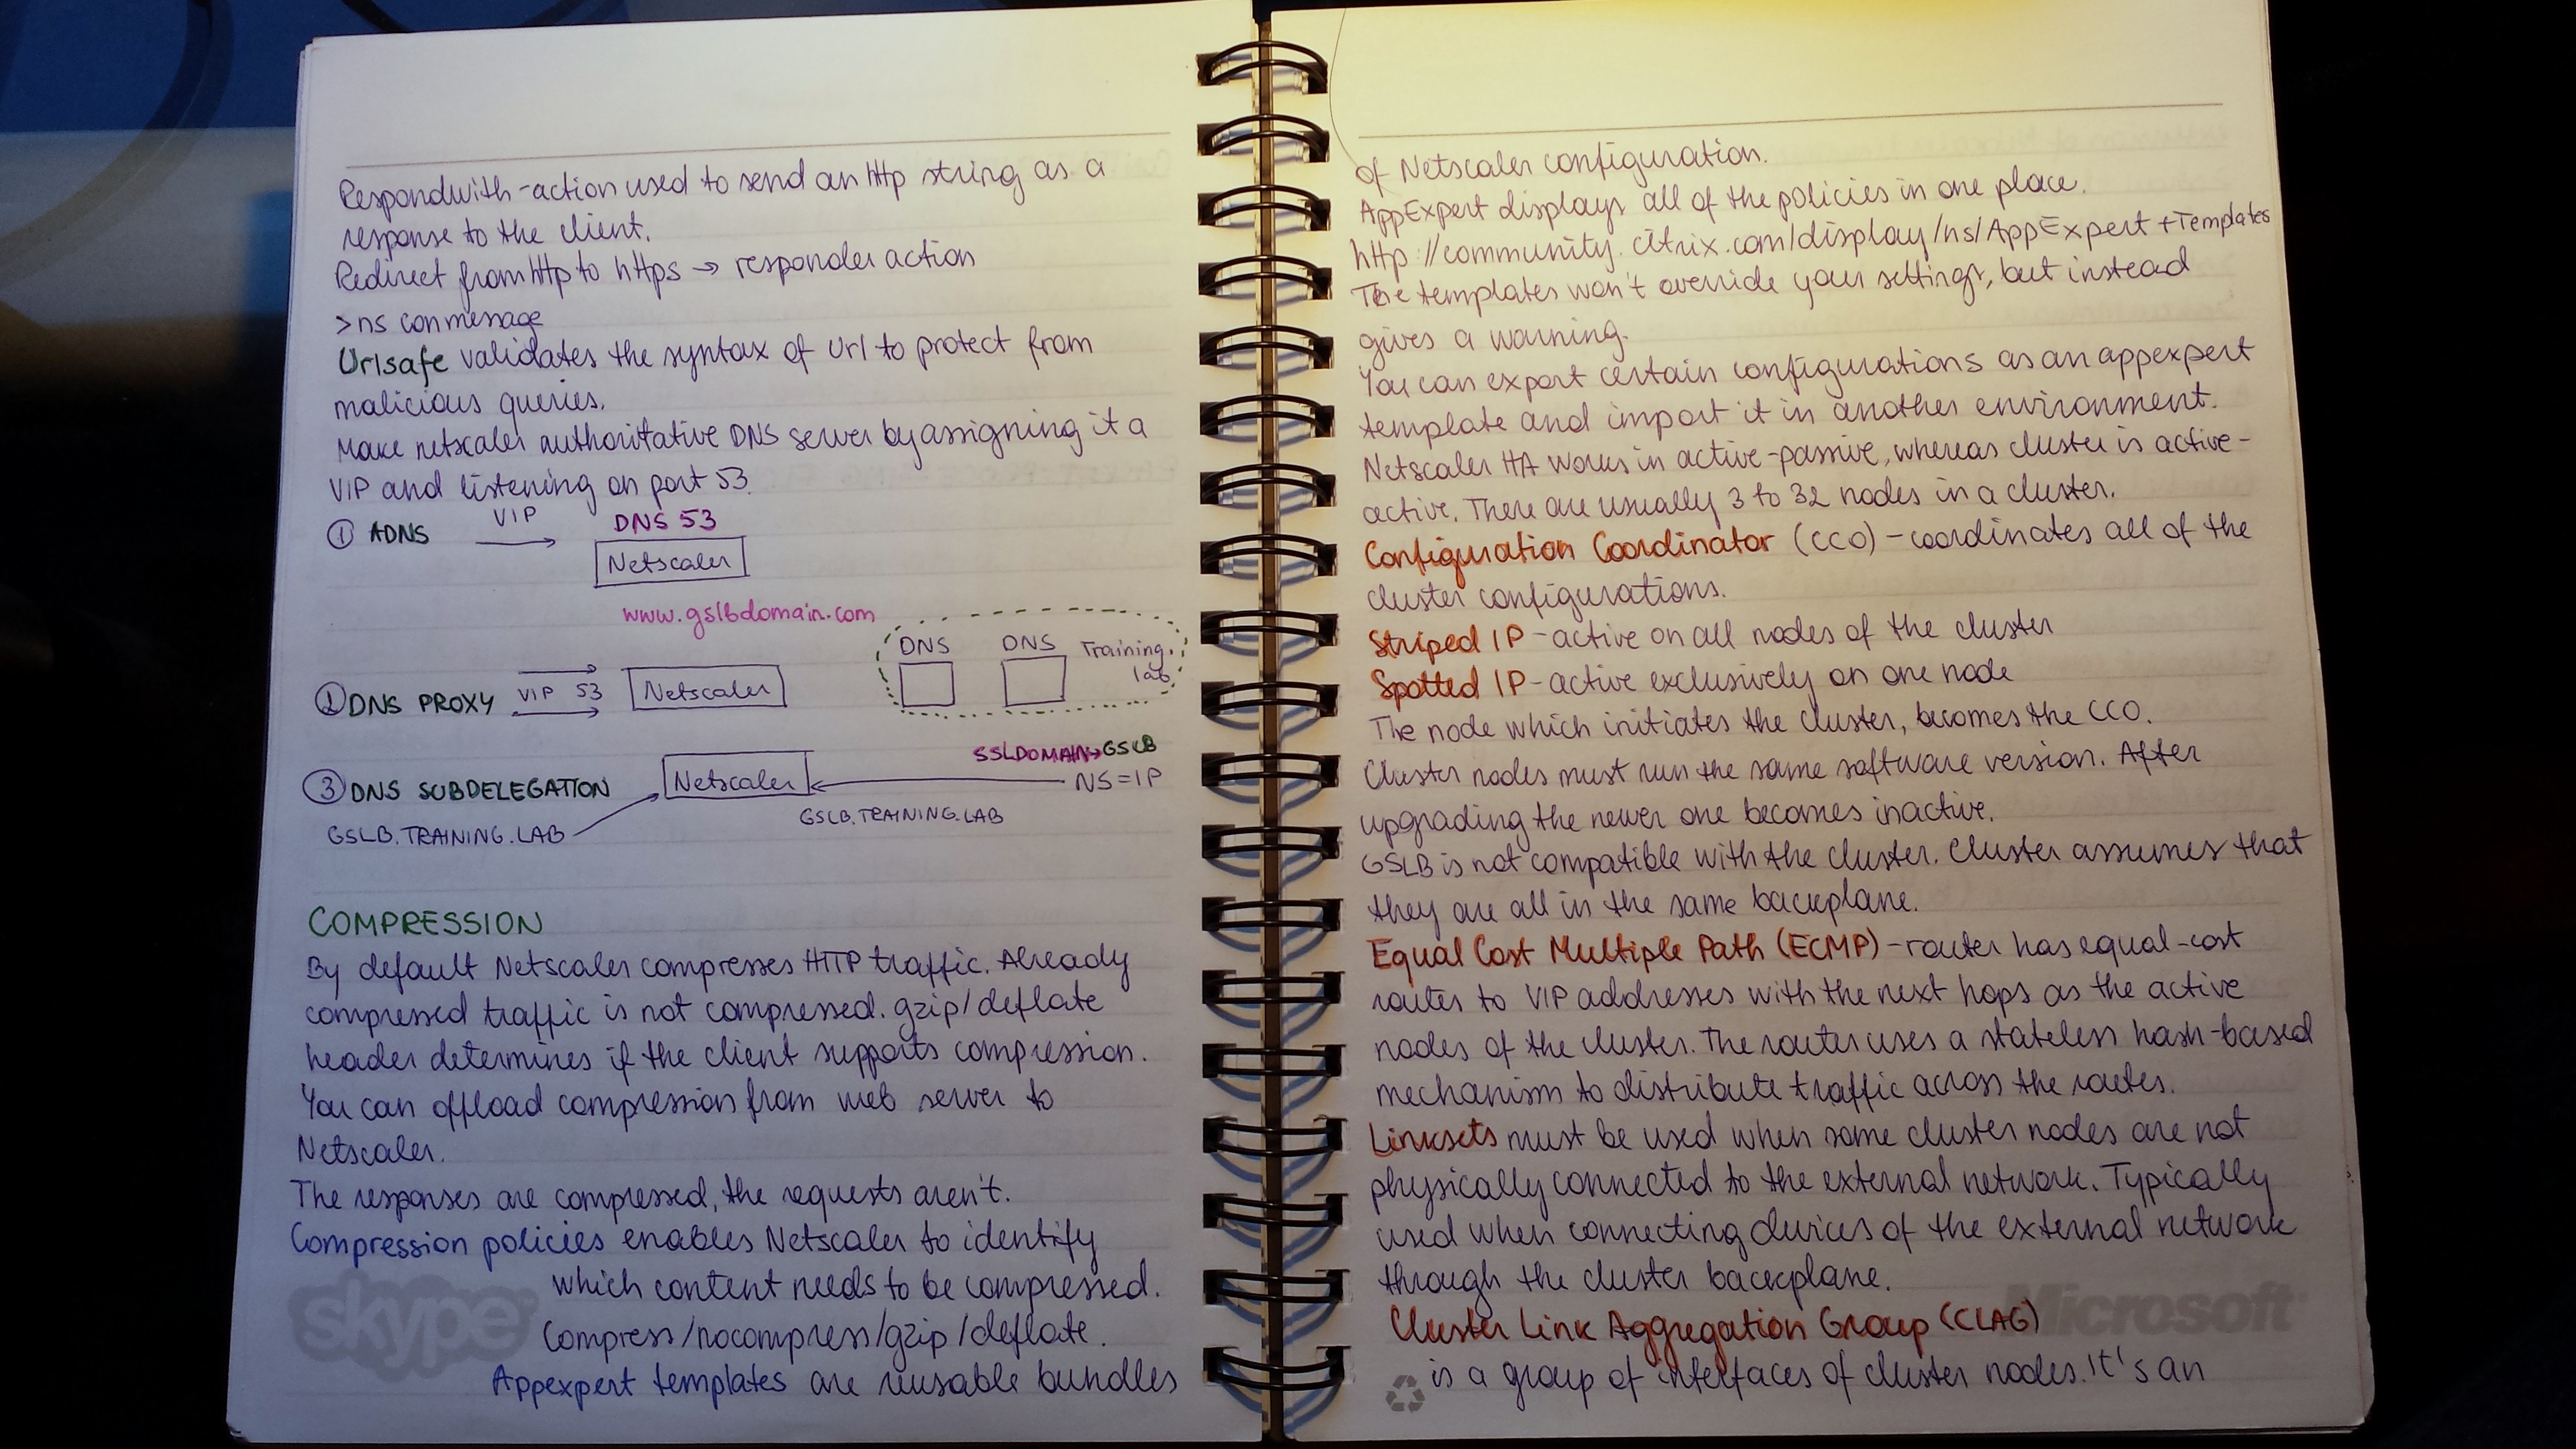 Respondwith-action used to send an http string as a
response to the client.
Redirect from http to https → responder action
>ns conmessage
Urlsafe validates the syntax of url to protect from
malicious queries.
Make netscaler authoritative DNS server by assigning it a
VIP and listening on port 53.
① ADNS VIP DNS 53
Netscaler
www.gslbdomain.com
DNS DNS Training.
lab
② DNS PROXY VIP 53 Netscaler
SSLDOMAIN→GSLB
③ DNS SUBDELEGATION Netscaler NS=IP
GSLB.TRAINING.LAB
GSLB.TRAINING.LAB
COMPRESSION
By default Netscaler compresses HTTP traffic. Already
compressed traffic is not compressed. gzip/deflate
header determines if the client supports compression.
You can offload compression from web server to
Netscaler.
The responses are compressed, the requests aren't.
Compression policies enables Netscaler to identify
which content needs to be compressed.
skype
Compress/nocompress/gzip/deflate.
Appexpert templates are reusable bundles
of Netscaler configuration.
AppExpert displays all of the policies in one place.
http://community.citrix.com/display/ns/AppExpert+Templates
The templates won't override your settings, but instead
gives a warning.
You can export certain configurations as an appexpert
template and import it in another environment.
Netscaler HA works in active-passive, whereas cluster is active-
active. There are usually 3 to 32 nodes in a cluster.
Configuration Coordinator (CCO) - coordinates all of the
cluster configurations.
Striped IP - active on all nodes of the cluster
Spotted IP - active exclusively on one node
The node which initiates the cluster, becomes the CCO.
Cluster nodes must run the same software version. After
upgrading the newer one becomes inactive.
GSLB is not compatible with the cluster. Cluster assumes that
they are all in the same backplane.
Equal Cost Multiple Path (ECMP) - router has equal-cost
routes to VIP addresses with the next hops as the active
nodes of the cluster. The router uses a stateless hash-based
mechanism to distribute traffic across the routes.
Linksets must be used when some cluster nodes are not
physically connected to the external network. Typically
used when connecting devices of the external network
through the cluster backplane.
Microsoft
Cluster Link Aggregation Group (CLAG)
is a group of interfaces of cluster nodes. It's an